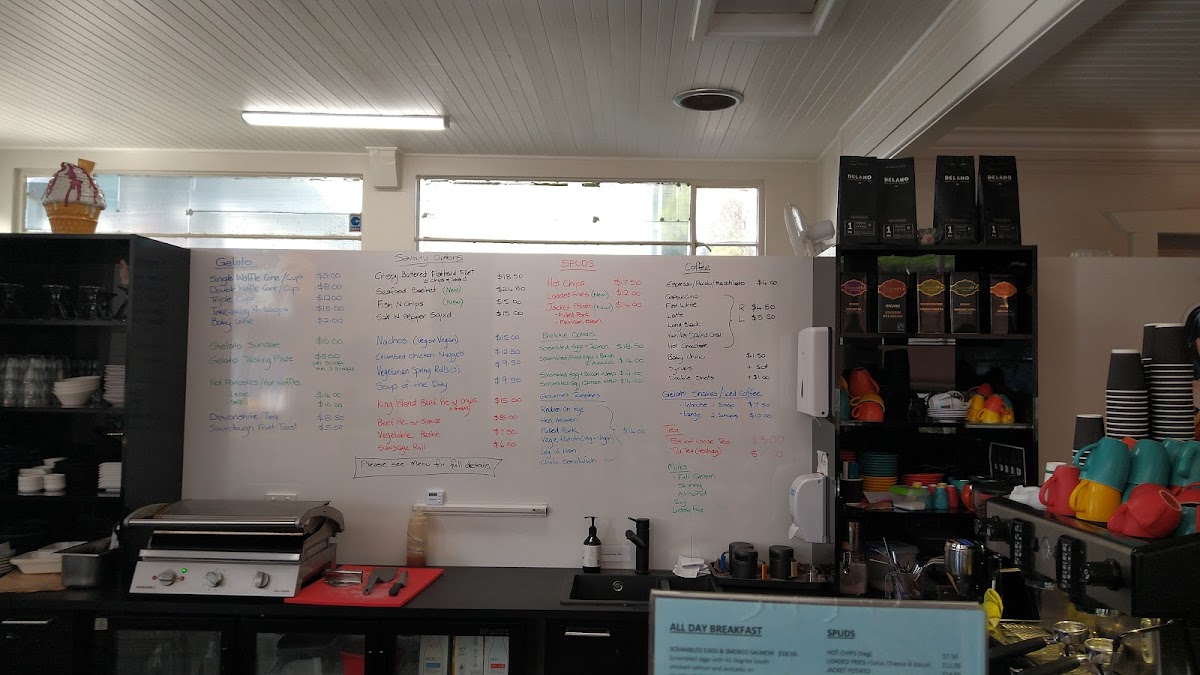 Gelato
Single Waffle Cone/Cup $5.00
Double Waffle Cone/Cup $8.00
Triple Cup $12.00
Take-away 4 scoops $15.00
Baby Cone $2.00
Gelato Sundae $10.00
Gelato Tasting Plate $5.00
Hot Pancakes/Hot Waffles
- Large $14.00
- Small $9.00
Devonshire Tea $8.50
Sourdough Fruit Toast $5.00
Savoury Options
Crispy Battered Flathead Fillet $18.50
Chips & Salad
Seafood Basket (New) $24.50
Fish N Chips (New) $15.00
Salt N Pepper Squid $15.00
Nachos (Veg or Vegan) $15.00
Crumbed Chicken Nuggets $12.50
Vegetarian Spring Rolls (3) $9.50
Soup of the Day $9.50
King Island Beef Pie w/ chips $15.00
Beef Pie w/ Sauce $8.00
Vegetable Pastie $7.50
Sausage Roll $6.00
Please see Menu for full details
SPUDS
Hot Chips $7.50
Loaded Fries (New) $12.00
Jacket Potato (New) $14.00
- Pulled Pork
- Mexican Bean
Brekkie Options
Scrambled Egg + Salmon $18.50
$16.00
Scrambled Egg + Bacon Wrap $14.00
Scrambled Egg + Spinach Wrap $14.00
Gourmet Toasties
Reuben On Rye
Pulled Pork $16.00
Leg o Ham
Club Sandwich
Coffee
Espresso/Piccolo/Macchiato $4.00
Cappuccino
Flat White R $4.50
Latte L $5.50
Long Black
Vanilla/Spiced Chai
Hot Chocolate
Baby Chino $1.50
Syrups + 50¢
Double Shots + $1.00
Gelato Shakes/Iced Coffee
- Inhouse 1 Scoop $7.50
- Large 2 Scoops $10.00
Tea
Pot of Loose Tea $5.00
T/A Tea (teabag)
Milks
- Full Cream
- Skinny
- Almond
Soy
Lactose Free
DELANO
DELANO
DELANO
DELANO
1
1
1
1
ALL DAY BREAKFAST
SCRAMBLED EGGS & SMOKED SALMON $18.50
Scrambled eggs with 41 Degree South
smoked salmon and avocado on
SPUDS
HOT CHIPS (Veg) $7.50
LOADED FRIES - Salsa, Cheese & Bacon $12.00
JACKET POTATO